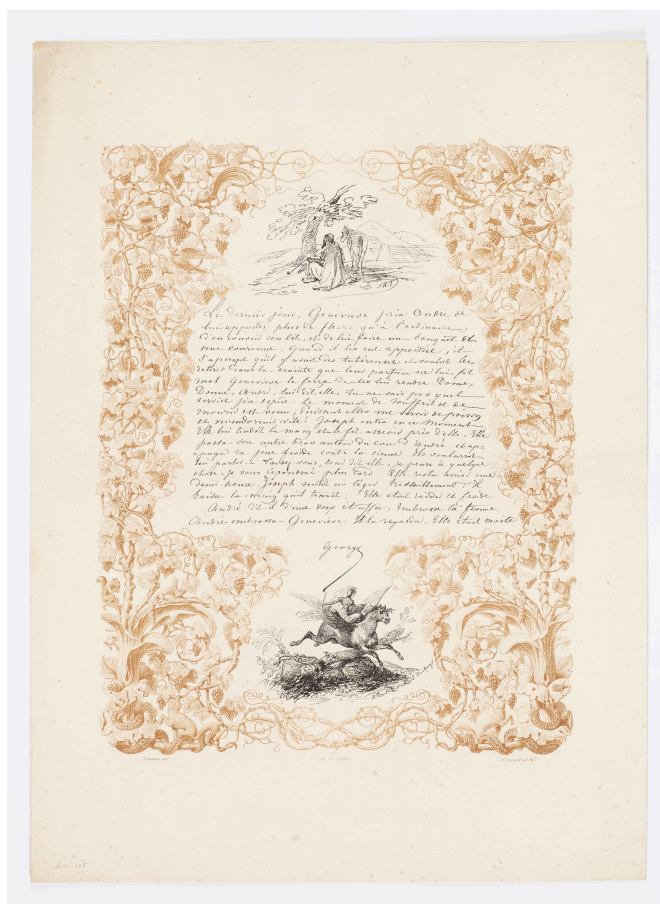 Le dernier jour, Geneviève pria André de
lui apporter plus de fleurs qu'à l'ordinaire,
d'en couvrir son lit, et de lui faire un bouquet et
une couronne. Quand il les eut apportées, il
s'aperçut qu'il y avait des tubéreuses et voulut les
retirer dans la crainte que leur parfum ne lui fit
mal. Geneviève le força de les lui rendre. Donne,
Donne, André, lui dit elle, tu ne sais pas quel
service j'en espère. Le moment de souffrir et de
mourir est venu, puissent elles me servir de poison
et m'endormir vite! Joseph entra en ce moment.
Elle lui tendit la main et le fit asseoir près d'elle. Elle
passa son autre bras autour du cou d'André, et ap-
puya sa joue froide contre la sienne. Ils voulurent
lui parler. Laissez vous, leur dit elle, je pense à quelque
chose, je vous répondrai plus tard. Elle resta ainsi une
demi heure. Joseph sentit un léger tressaillement; il
baisa la main qu'il tenait; Elle était raide et froide.
André dit il d'une voix étouffée, Embrasse ta femme.
André embrassa Geneviève; Il la regarda. Elle était morte
George